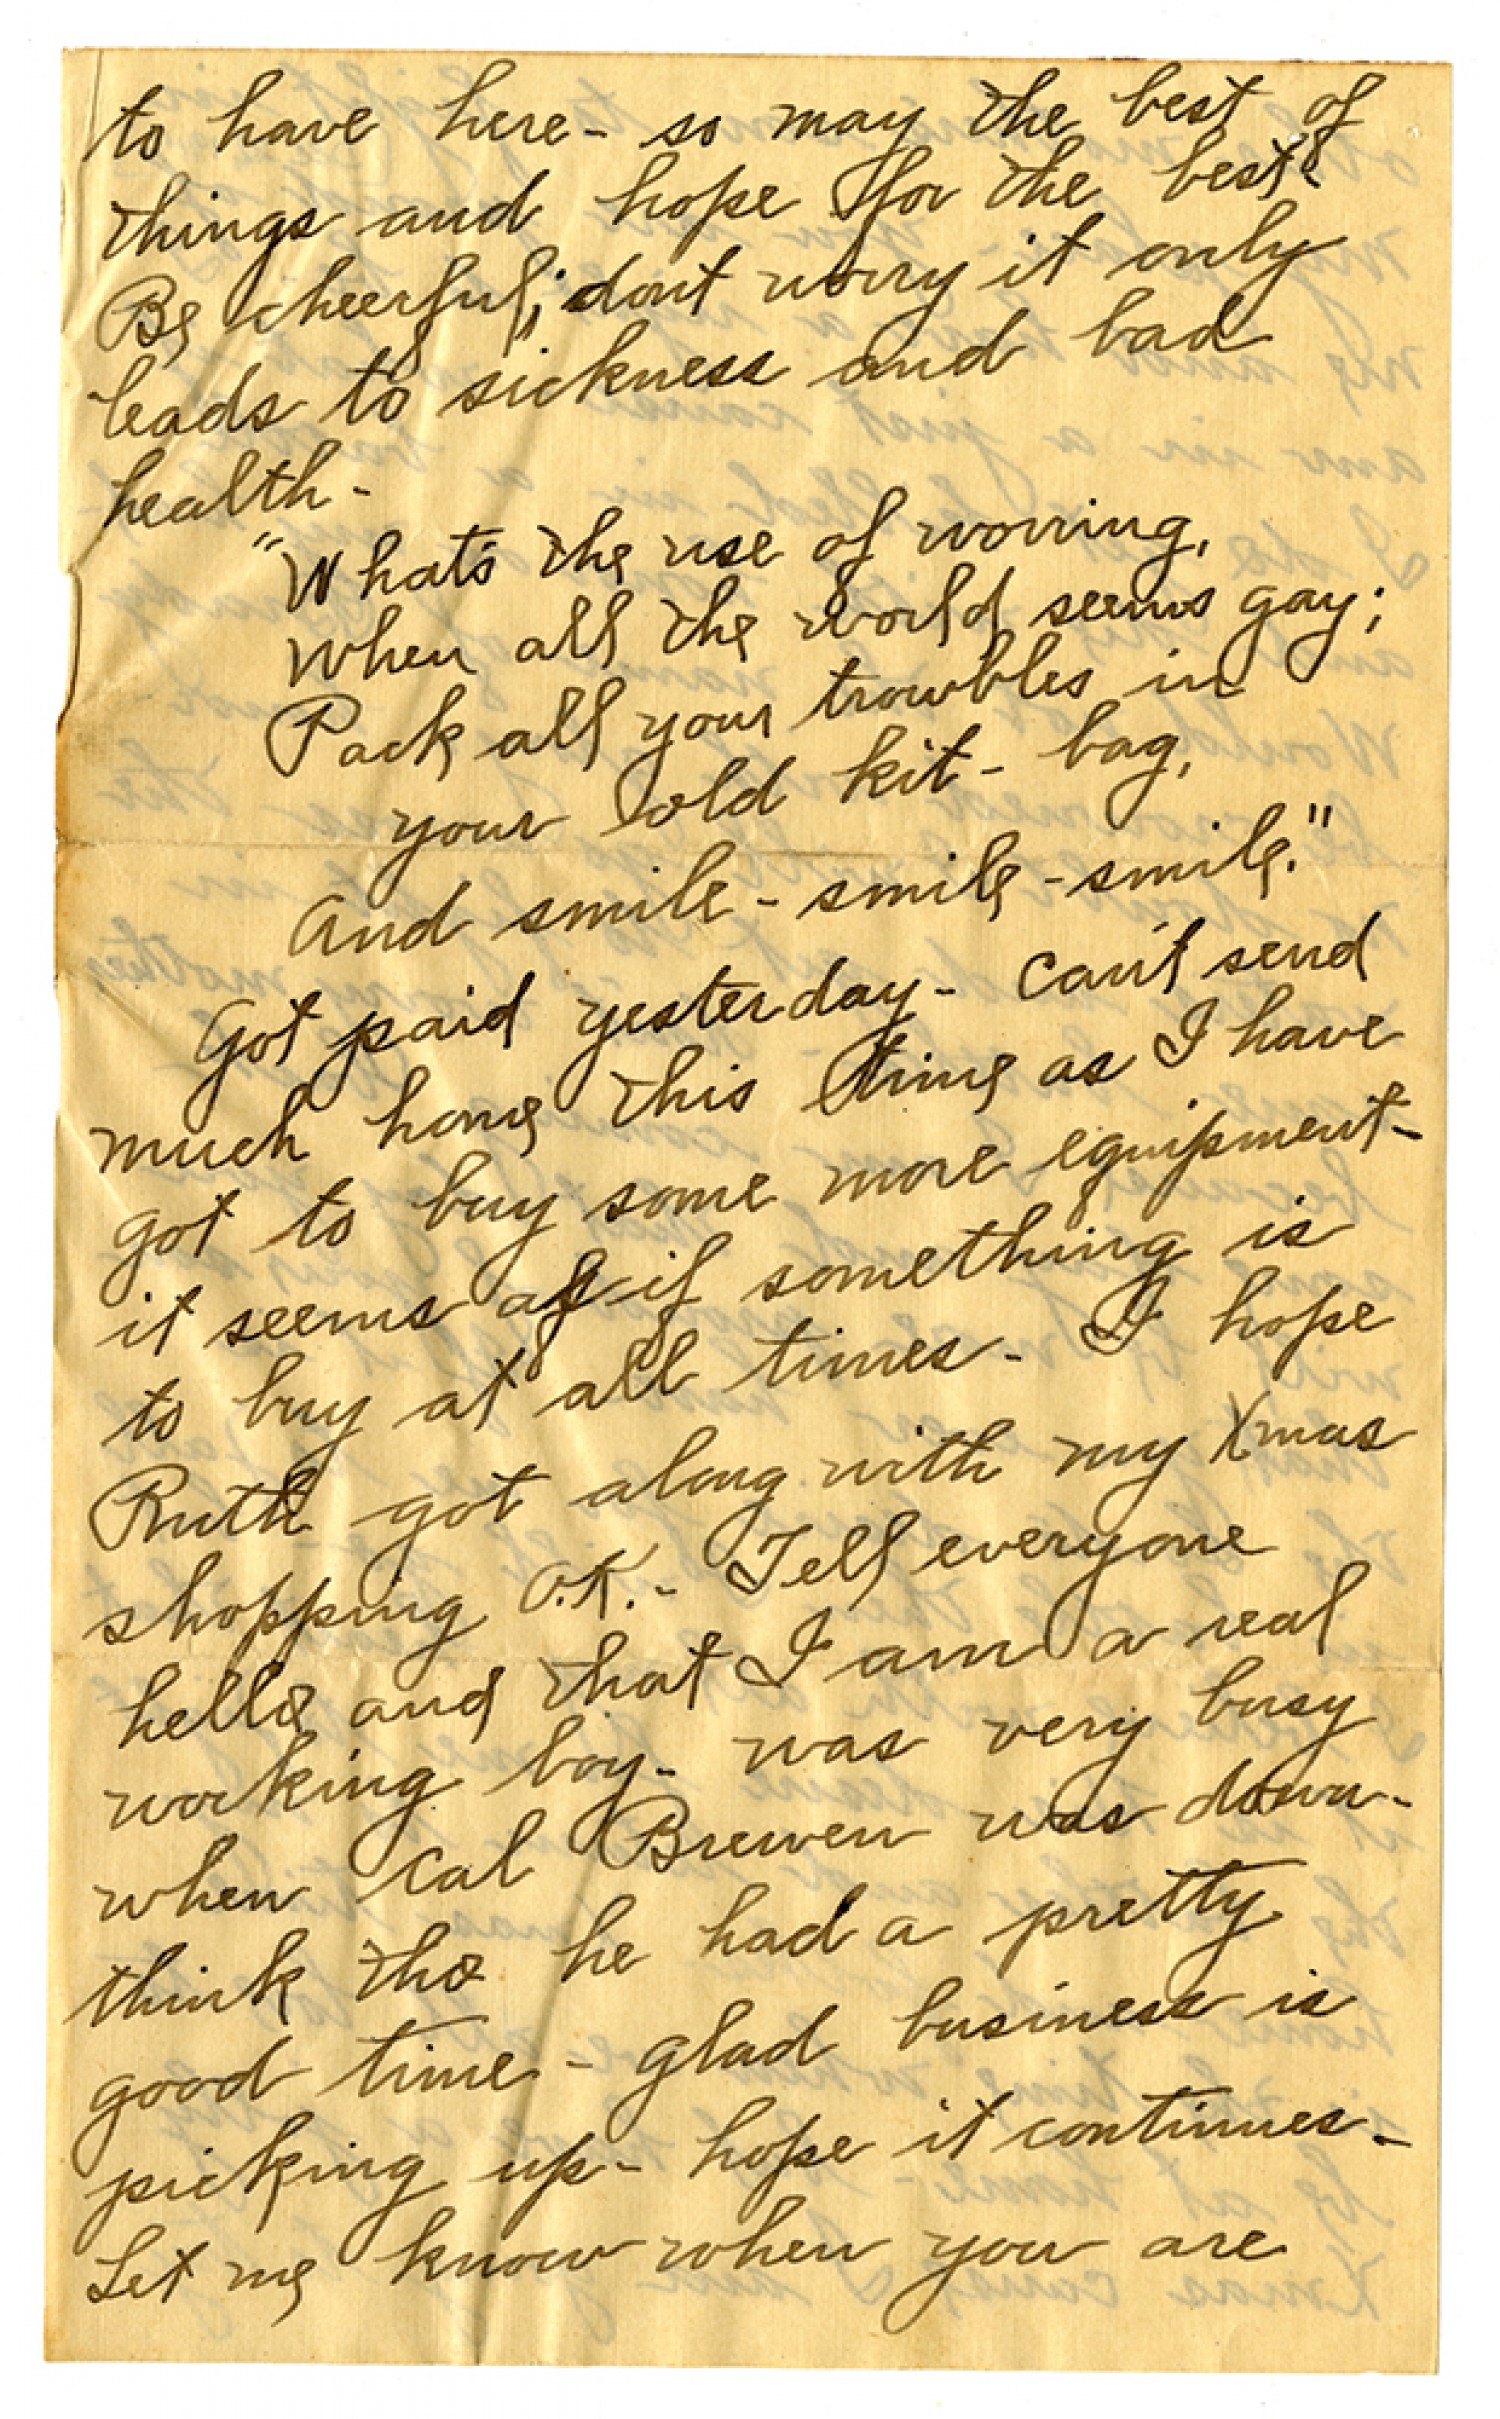 to have here - so may the best of
things and hope for the best.
Be cheerful; dont worry it only
leads to sickness and bad
health -
"What's the use of worring,
When all the world seems gay;
Pack all your troubles in
your old kit - bag,
And smile - smile - smile."
Got paid yesterday - can't send
much home this time as I have
got to buy some more equipment -
it seems as if something is
to buy at all times - I hope
Ruth got along with my Xmas
shopping O.K. - Tell everyone
hello and that I am a real
working boy - was very busy
when Cal Brewen was down -
think tho he had a pretty
good time - glad business is
picking up - hope it continues -
Let me know when you are